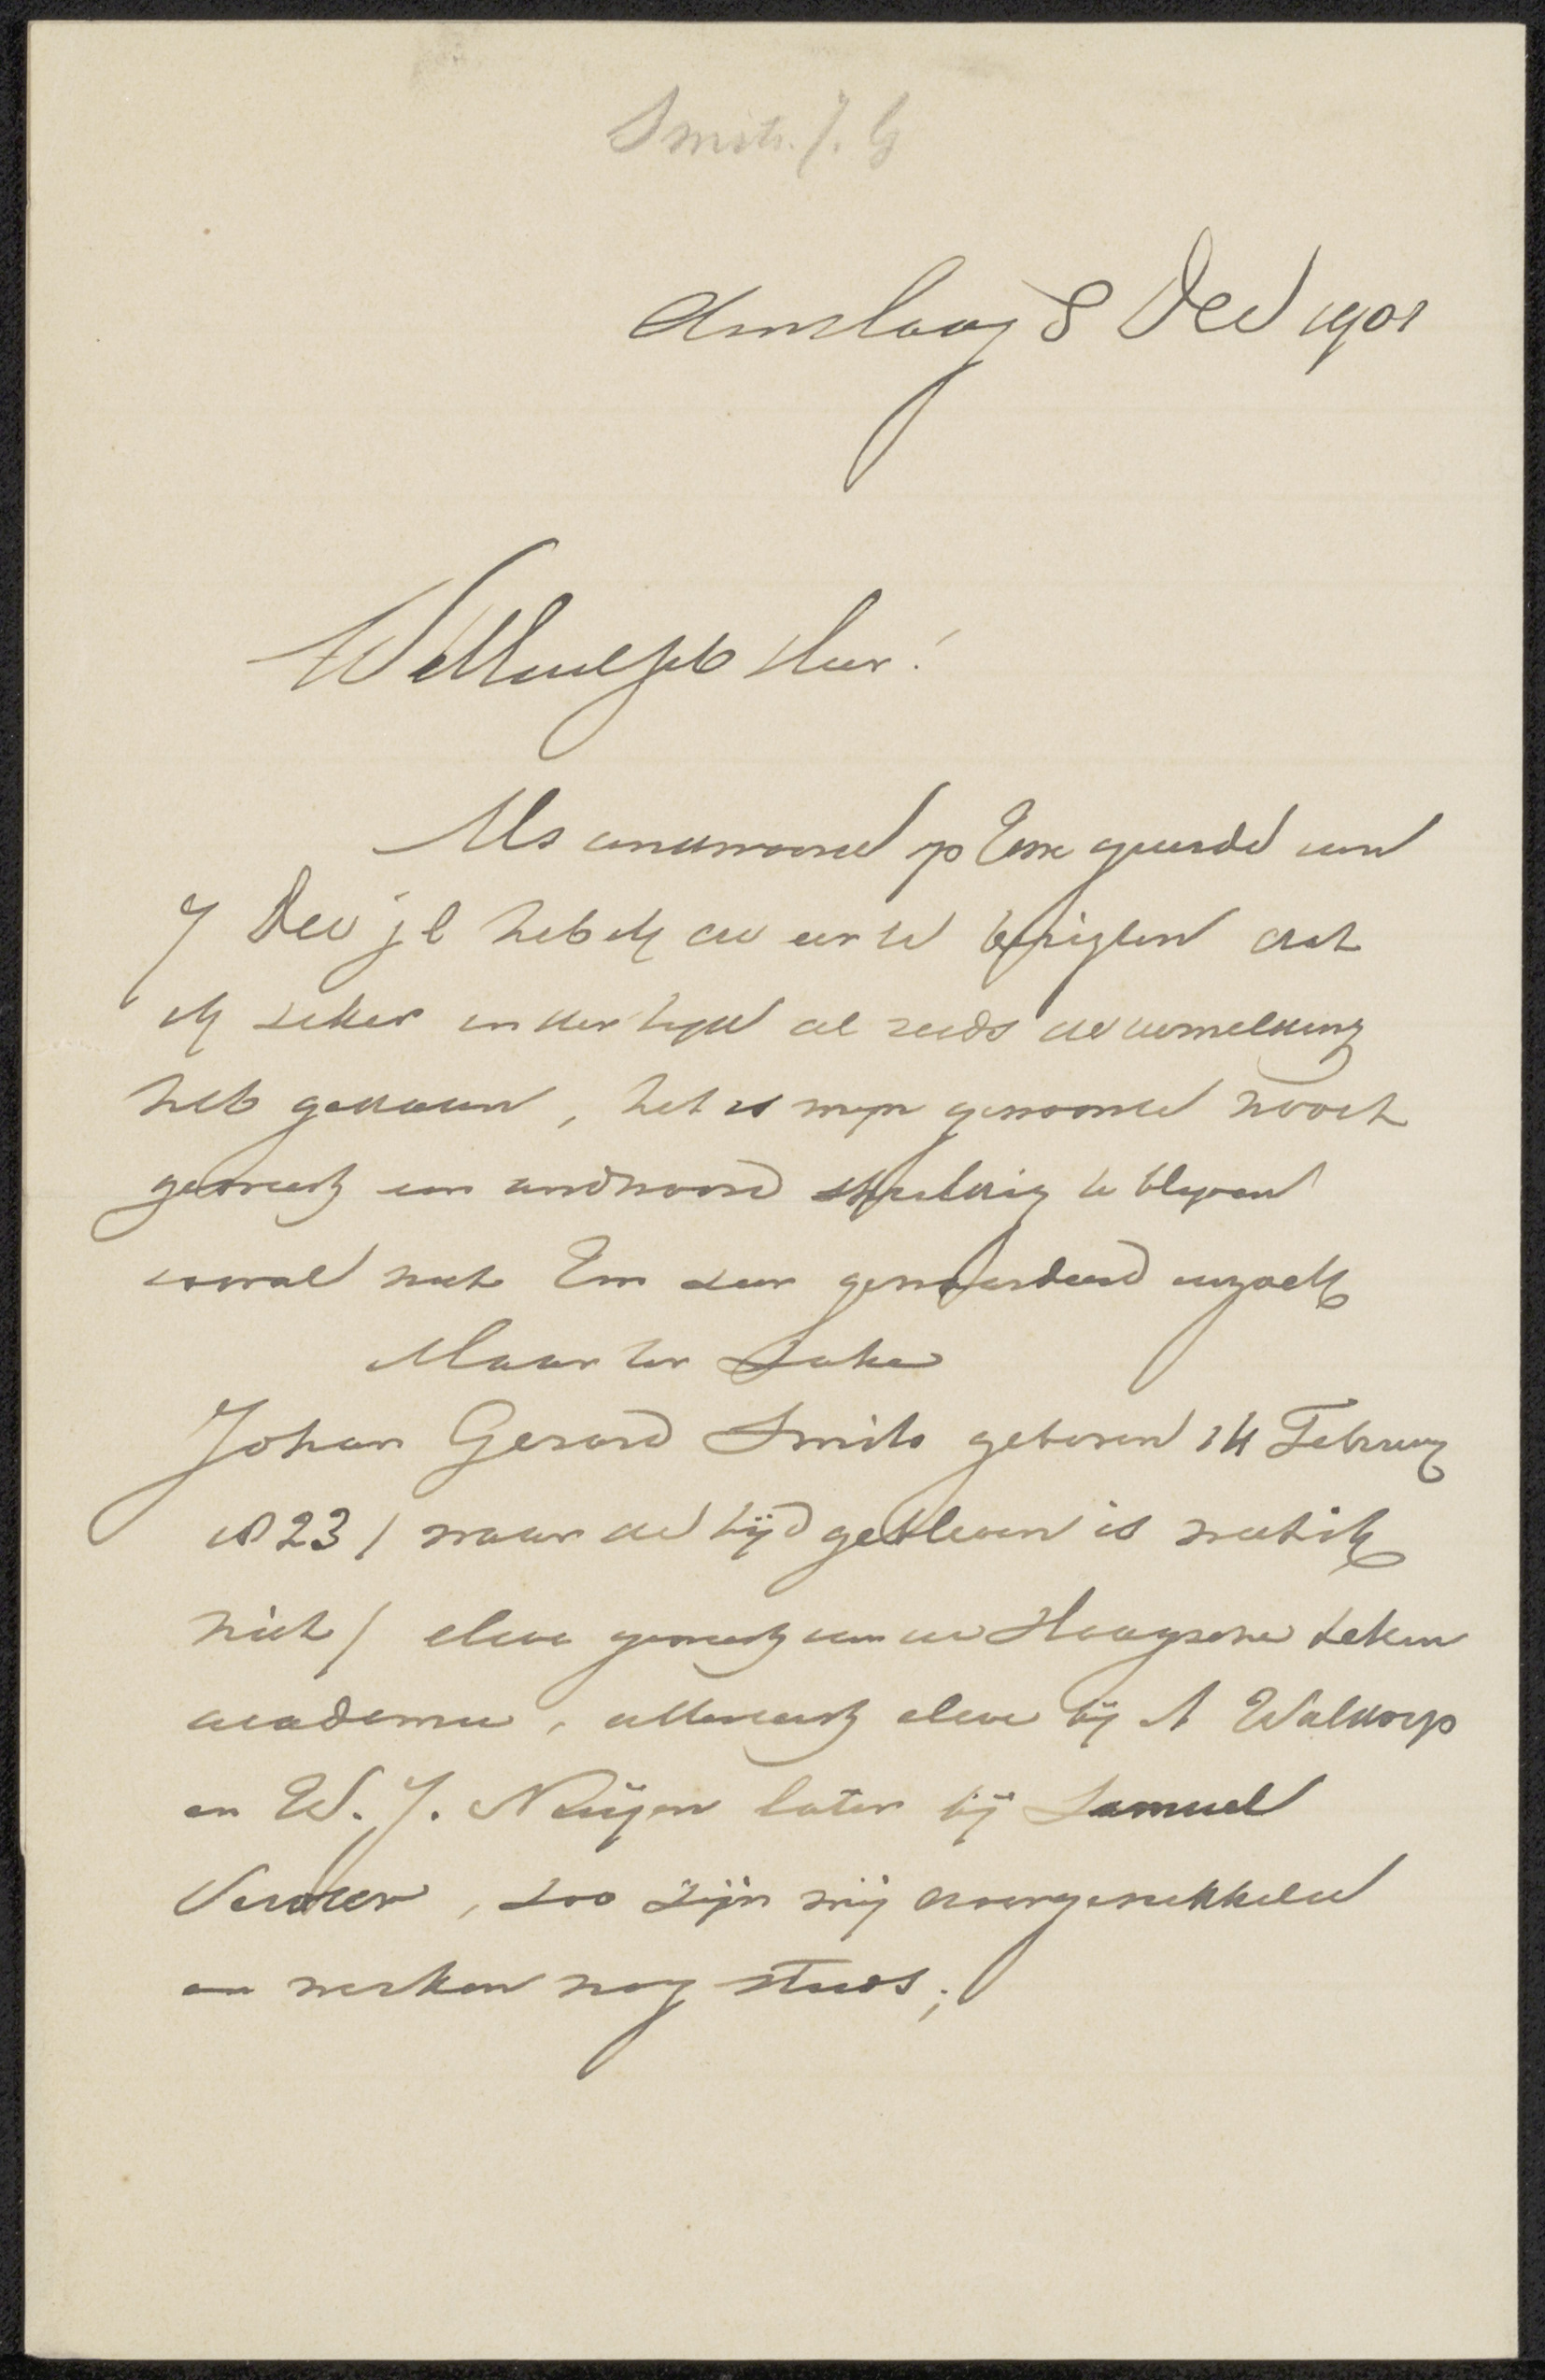 Smits. J. G
8 Dec 1901
WelEdelgeb Heer!
Als andwoord op Uwe geeerde van
7 Dec jl heb ik de eer te berigten dat
ik zeker in der tijd al reeds de vermelding
heb gedaan, het is mijn gewoonte nooit
geweest een andwoord schuldig te blijven
vooral niet Uw zeer gewaardeerd
Maar ter Zake
Johan Gerard Smits geboren 14 February
1823 / waar de tijd gebleven is weet ik
niet / eleve geweest van de Haagsche teken
academie, allereerst eleve bij A Waldorp
en W. J. Nuijen later bij Samuel
Verveer, zoo zijn wij
en werken nog steeds;